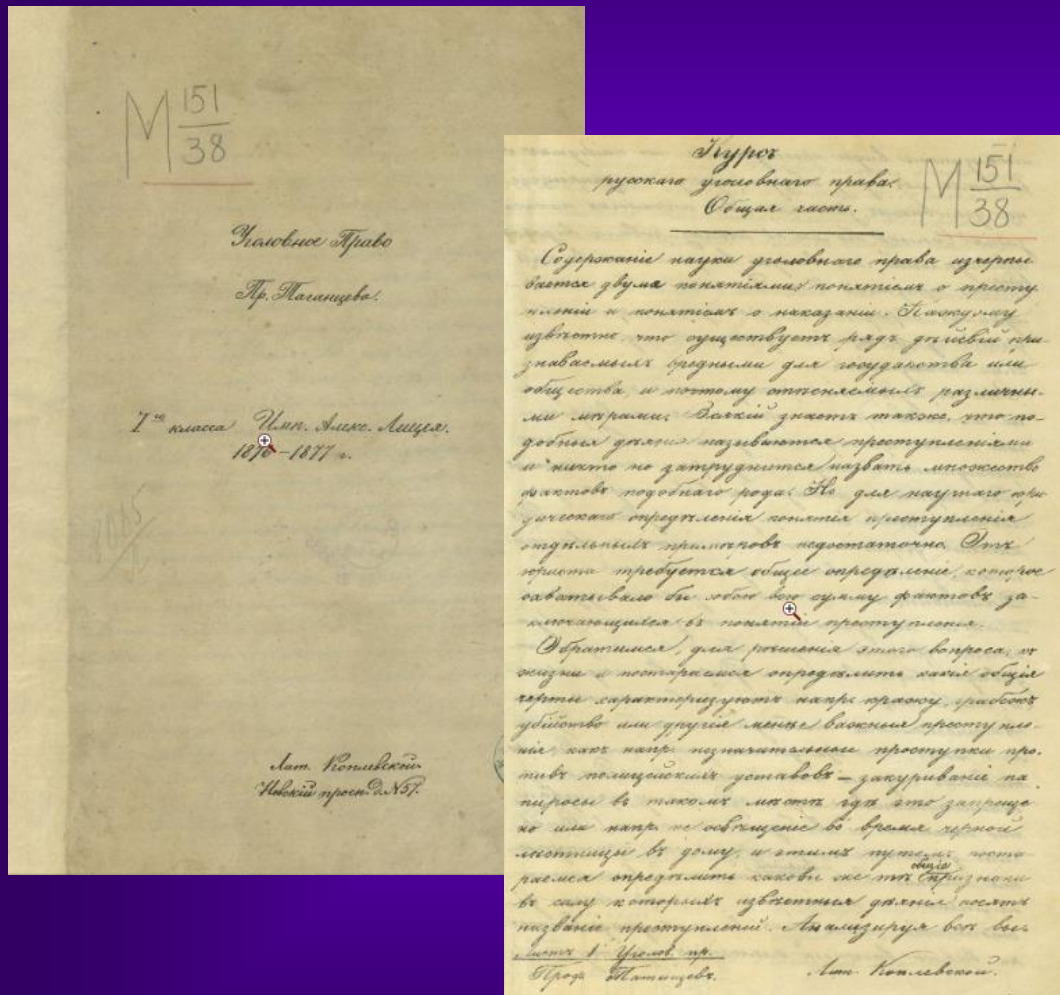 М 151/38
Уголовное Право
Пр. Таганцева.
I го класса Имп. Алекс. Лицея.
1876–1877 г.
Лит. Коплевской
Невскій просп. д. № 57.
Курсъ
русскаго уголовнаго права.
Общая часть.
М 151/38
Содержаніе науки уголовнаго права исчерпы-
вается двумя понятіями: понятіемъ о престу
пленіи и понятіемъ о наказаніи. Каждому
извѣстно, что существуетъ рядъ дѣйствій при-
знаваемыхъ вредными для государства или
общества, и потому различны-
ми мѣрами. Всякій знаетъ также, что по-
добныя дѣянія называются преступленіями
и никто не затруднится назвать множество
фактовъ подобнаго рода. Но для научнаго юри
дическаго опредѣленія понятія преступленія
отдѣльныхъ недостаточно.
юриста требуется общее опредѣленіе, которое
охватывало бы собою всю сумму фактовъ за-
ключающихся въ понятіи преступленія.
Обратимся, для рѣшенія этого вопроса, къ
жизни и постараемся опредѣлить какія общія
черты характеризуютъ напр. кражу, грабежъ
убійство или другія менѣе важныя преступле-
нія, какъ напр. незначительные проступки про-
тивъ полицейскихъ уставовъ — закуриваніе па
пиросы въ такомъ мѣстѣ гдѣ это запреще
но или напр. не освѣщеніе во время черной
лѣстницы въ дому, и этимъ путемъ поста
раемся опредѣлить каковы же тѣ общіе признаки
въ силу которыхъ извѣстныя дѣянія носятъ
названіе преступленій. Анализируя всѣ вы-
Листъ 1 Уголов. пр.
Проф. Таганцевъ.
Лит. Коплевской.